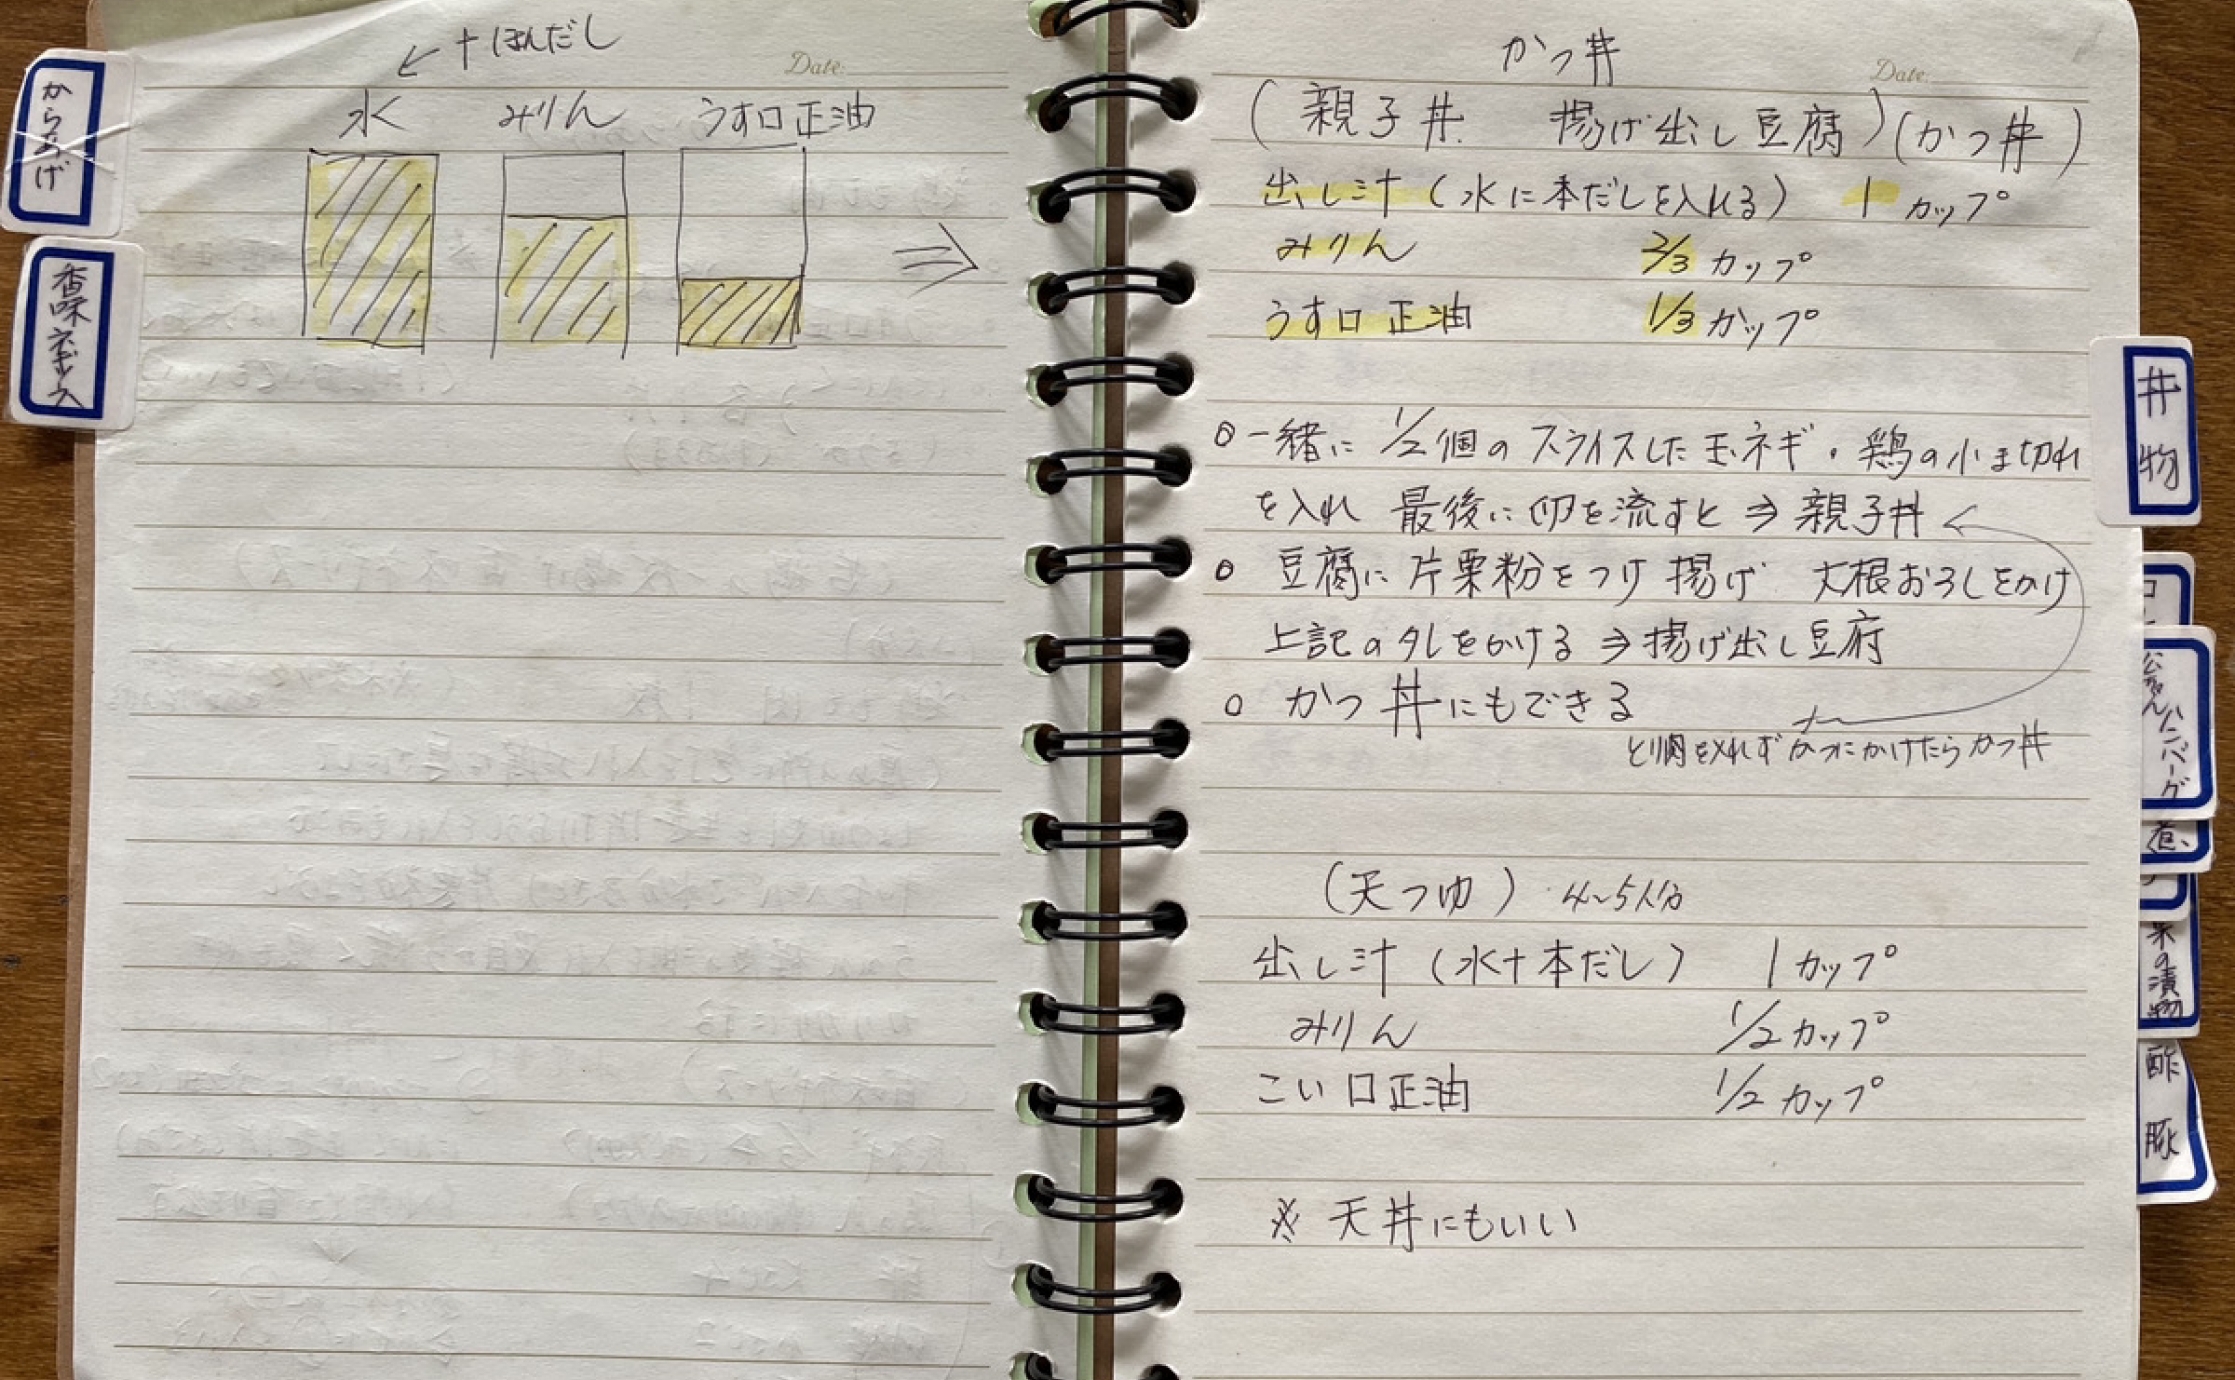 からあげ
香味ネギソース
← + ほんだし
Date:
水 みりん うす口正油
⇒
かつ丼
Date:
(親子丼 揚げ出し豆腐)(かつ丼)
出し汁(水に本だしを入れる) 1カップ
みりん 2/3カップ
うす口正油 1/3カップ
○一緒に1/2個のスライスした玉ネギ・鶏の小ま切れ
を入れ 最後に卵を流すと ⇒ 親子丼 ←
○ 豆腐に片栗粉をつけ 揚げ 大根おろしをかけ
上記のタレをかける ⇒ 揚げ出し豆府
○ かつ丼にもできる
とり肉を入れず かつにかけたらかつ丼
(天つゆ) 4~5人分
出し汁(水+本だし) 1カップ
みりん 1/2カップ
こい口正油 1/2カップ
※ 天丼にもいい
丼物
ハンバーグ
の漬物
酢豚